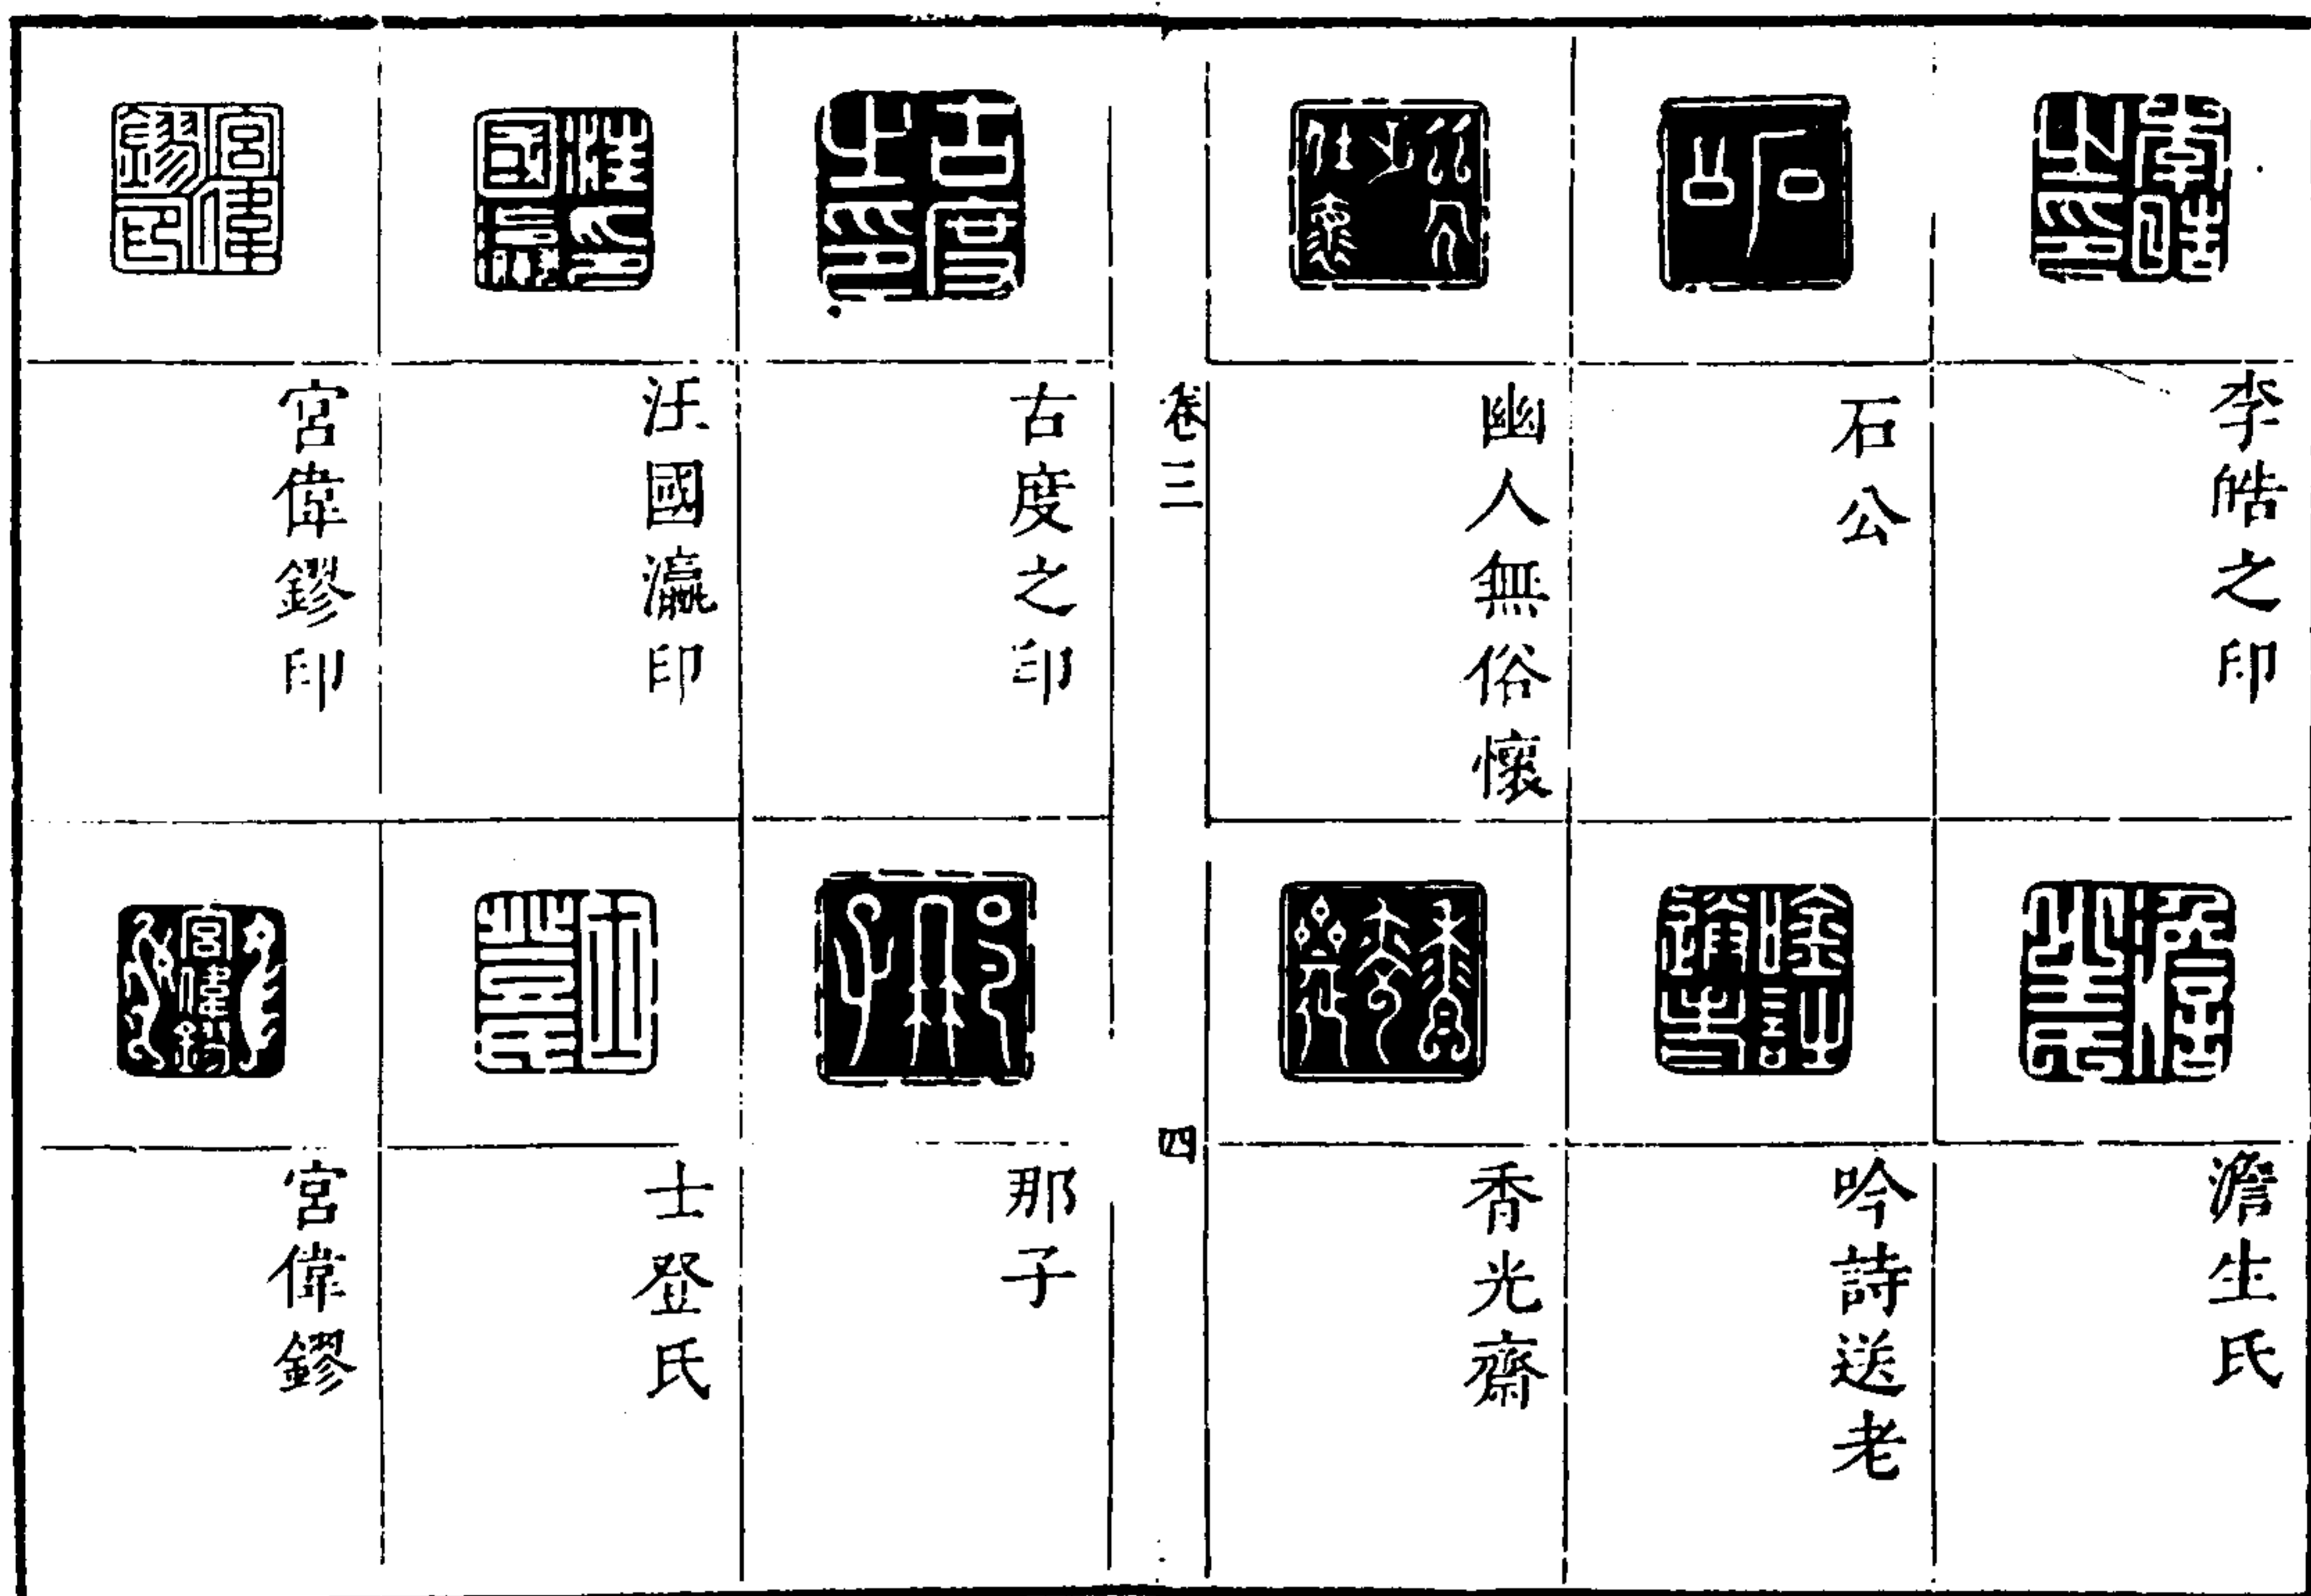 李皓之印
澹生氏
石公
吟詩送老
幽人無俗懷
香光齋
卷三
四
古度之印
那子
汪國瀛印
士登氏
宮偉鏐印
宮偉鏐